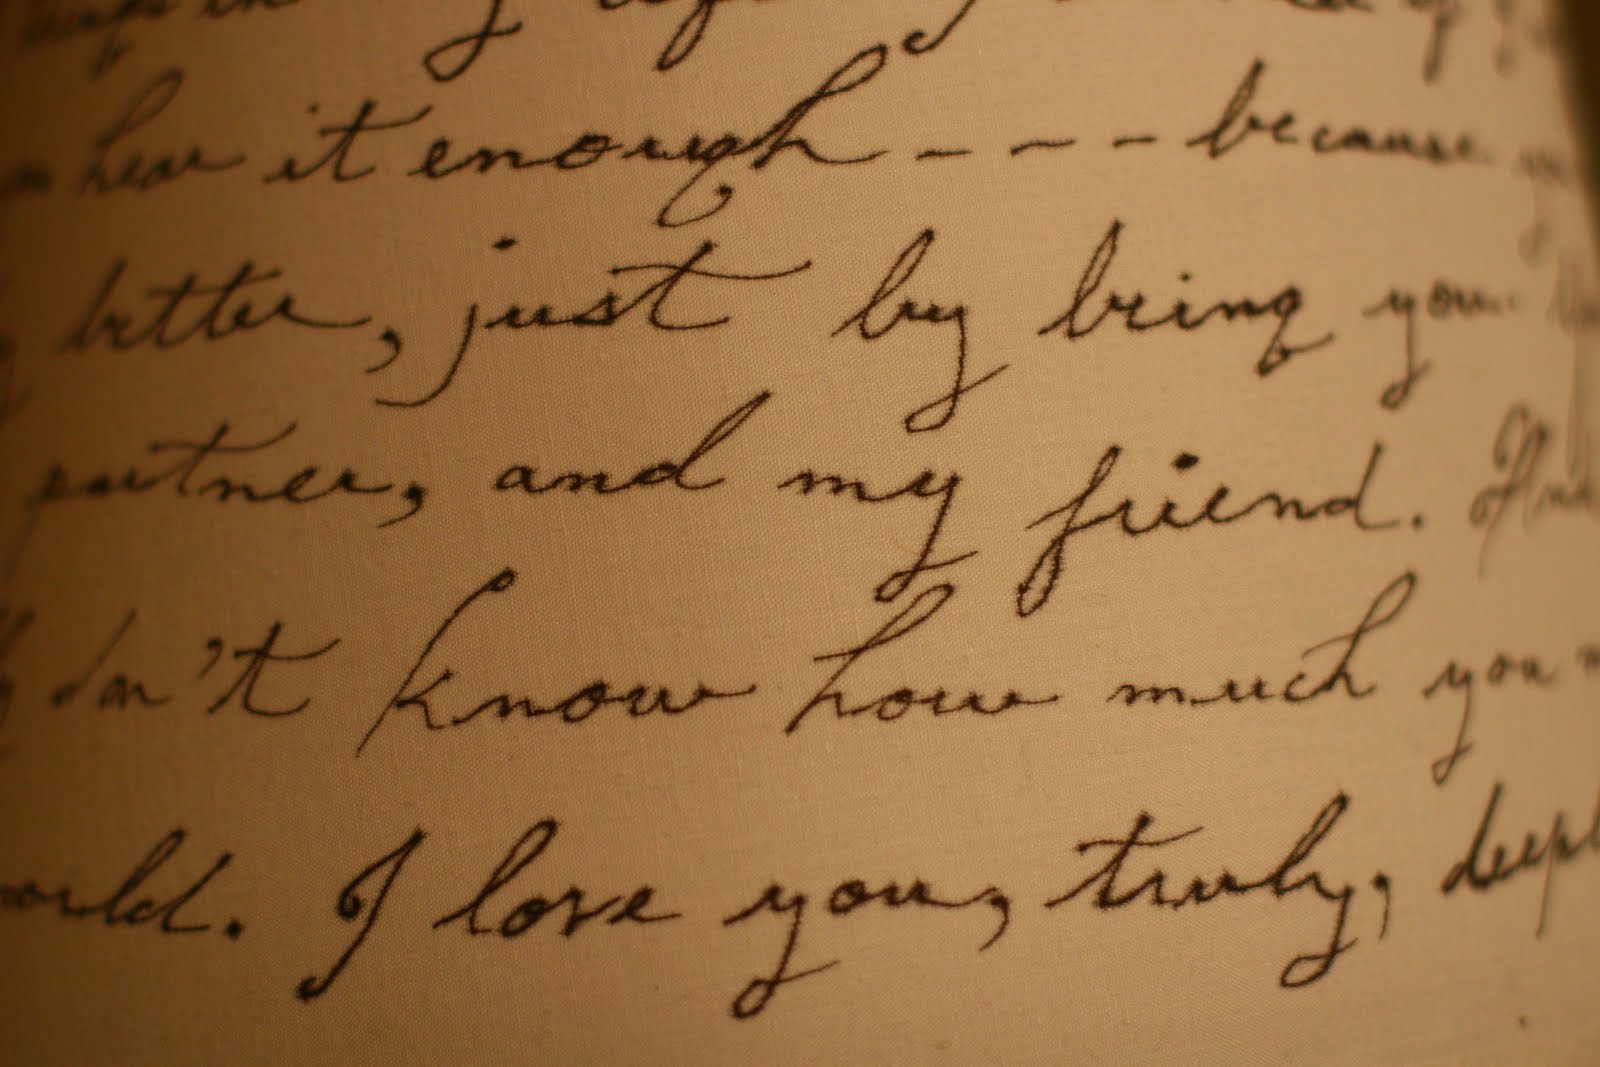 in my
hear it enough - - - because you
better, just by bring you
partner, and my friend. And
don't know how much you
world. I love you, truly, deepl